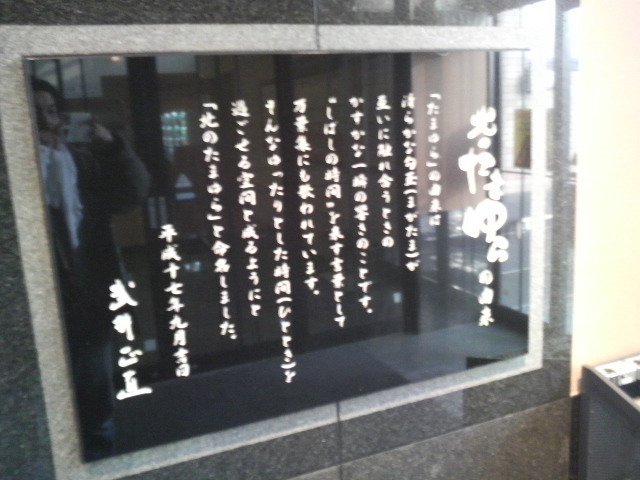 北のたまゆらの由来
「たまゆら」の由来は
清らかな勾玉(まがたま)が
互いに触れ合うときの
かすかな一瞬の響きのことです。
"しばしの時間"を表す言葉として
万葉集にも歌われています。
そんなゆったりとした時間(ひととき)を
過ごせる空間と成るようにと
「北のたまゆら」と命名しました。
平成十七年九月吉日
武井正直